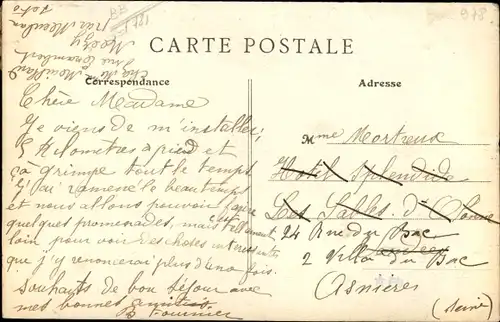 CARTE POSTALE
Correspondance
Adresse
Chère Madame
Je viens de m'installer,
5 kilomètres à pied et
çà grimpe tout le temps
J'ai ramené le beau temps
et nous allons pouvoir faire
quelques promenades, mais tellement
loin pour voir des choses intéressantes
que j'y renoncerai plus d'une fois.
Souhaits de bon séjour avec
mes bonnes amitiés
B Fournier
Mme Mortreux
Hotel Splendide
Les Sables d'Olonne
24 Rue du Bac
Vendée
2 Villa du Bac
Asnières
(Seine)
978